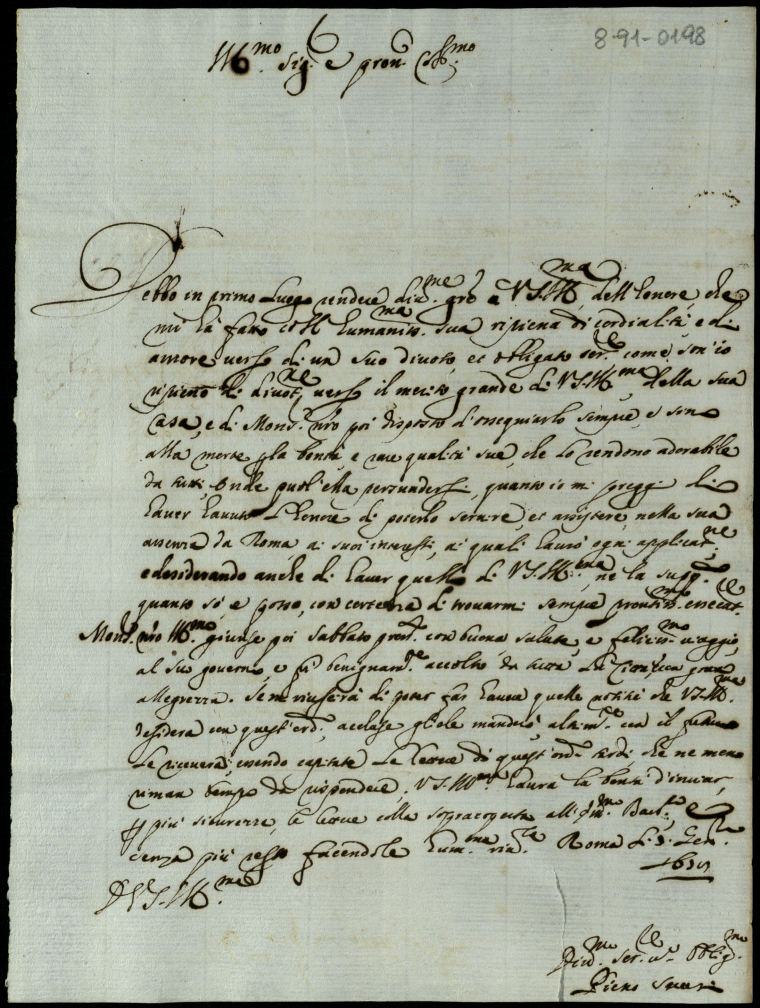 8-91-0198
Ill.mo Sig.r e pron. Coll.mo
Debbo in primo Luogo rendere a V.S. Ill.ma dell'honore, che
mi hà fatto coll'humaniss.ma sua ripiena di cordialità e di
amore verso di un suo divoto, et obligato ser.re come son'io
ripieno di divot.ne verso il merito grande di V.S. Ill.ma della sua
Casa, e di Mons. n'ro poi disposto d'ossequiarlo sempre, e sino
alla morte p. la bontà, e rare qualità sue, che Lo rendono adorabile
da tutti. Onde puol'ella persuadersi, quanto io mi pregi di
haver havuto L'honore di poterlo servire, et assistere, nella sua
assenza da Roma a' suoi interessi, a' quali havrò ogni applicat.ne
e desiderando anche di haver quello di V.S. Ill.ma, ne la supp.co
quanto sò e posso, con certezza di trovarmi sempre prontiss.mo
Mons. n'ro Ill.mo giunse poi Sabbato pross. con buona salute, e feliciss.mo viaggio,
al suo governo, e fù benignam.te accolto da tutta La con gran
allegrezza. Se mi riuscirà di poter far havere quelle notitie che V.S. Ill.ma
desidera con quest'ord., accluse gliele manderò, altrim.te con il futuro
Le riceverà; essendo capitate Le lettere di quest'ord. tardi, che ne meno
riman tempo da rispondere. V.S. Ill.ma haurà la bontà d'inviar,
p. più sicurezza, le lettere colla sopracoperta all'
senza più resto facendole hum.ma riv.za Roma Li 3. Gen.
Di V.S. Ill.ma
Div.mo ser.re obblig.mo
Piero